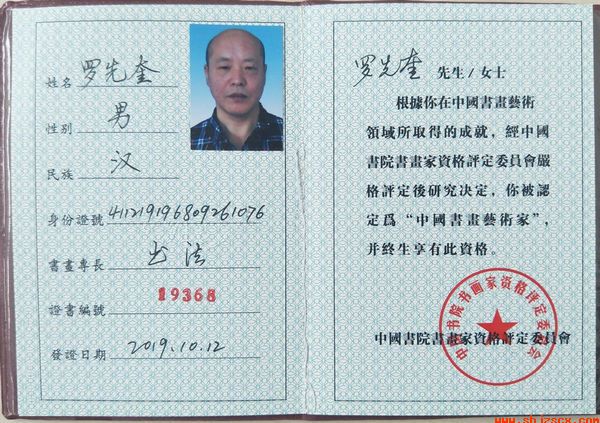 姓名 罗先奎
性别 男
民族 汉
身份證號 411219196809261076
書畫專長 书法
證書編號 19368
發證日期 2019.10.12
罗先奎 先生/女士
根據你在中國書畫藝術
領域所取得的成就，經中國
書院書畫家資格評定委員會嚴
格評定後研究決定，你被認
定爲“中國書畫藝術家”，
并終生享有此資格。
中國書院書畫家資格評定委員會
中国书院书画家资格评定委员会
www.shjzscx.com